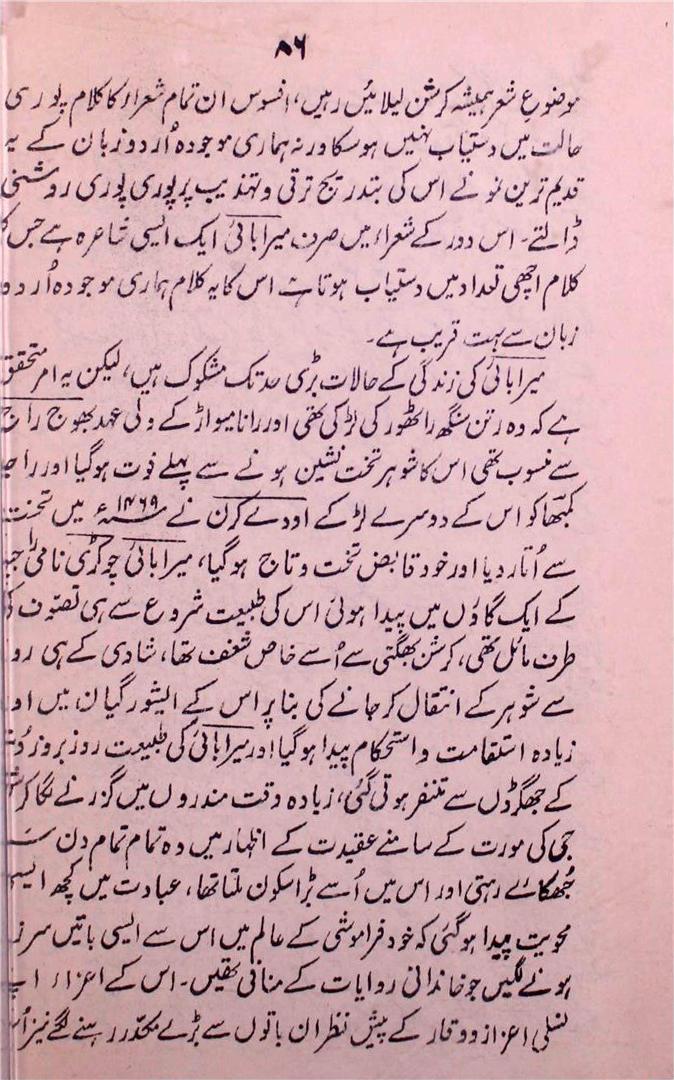 ۸۶
موضوعِ شعر ہمیشہ کرشن لیلائیں رہیں، افسوس ان تمام شعراء کا کلام پوری
حالت میں دستیاب نہیں ہوسکا ورنہ ہماری موجودہ اُردو زبان کے یہ
قدیم ترین نمونے اس کی بتدریج ترقی و تہذیب پر پوری پوری روشنی
ڈالتے۔ اس دور کے شعراء میں صرف میرا بائی ایک ایسی شاعرہ ہے جس کا
کلام اچھی تعداد میں دستیاب ہوتا ہے اس کا یہ کلام ہماری موجودہ اُردو
زبان سے بہت قریب ہے۔
میرا بائی کی زندگی کے حالات بڑی حد تک مشکوک ہیں، لیکن یہ امر متحقق
ہے کہ وہ رتن سنگھ راٹھور کی لڑکی تھی اور رانا میواڑ کے ولی عہد بھوج راج
سے منسوب تھی اس کا شوہر تخت نشین ہونے سے پہلے فوت ہوگیا اور
کمبھا کو اس کے دوسرے لڑکے اودے کرن نے ۱۴۶۹ء میں تخت
سے اُتار دیا اور خود قابض تخت و تاج ہوگیا، میرا بائی چوکڑی نامی
کے ایک گاؤں میں پیدا ہوئی اس کی طبیعت شروع سے ہی تصوّف کی
طرف مائل تھی، کرشن بھگتی سے اُسے خاص شغف تھا، شادی کے ہی
سے شوہر کے انتقال کر جانے کی بنا پر اس کے ایشور گیان میں
زیادہ استقامت و استحکام پیدا ہوگیا اور میرا بائی کی طبیعت روز بروز
کے جھگڑوں سے متنفر ہوتی گئی، زیادہ وقت مندروں میں گزرنے لگا
جی کی مورت کے سامنے عقیدت کے اظہار میں وہ تمام تمام دن
جُھکائے رہتی اور اس میں اُسے بڑا سکون ملتا تھا، عبادت میں کچھ
محویت پیدا ہوگئی کہ خود فراموشی کے عالم میں اس سے ایسی باتیں
ہونے لگیں جو خاندانی روایات کے منافی تھیں۔ اس کے اعزاء
نسلی اعزاز و وقار کے پیش نظر ان باتوں سے بڑے مکدّر رہنے لگے نیز